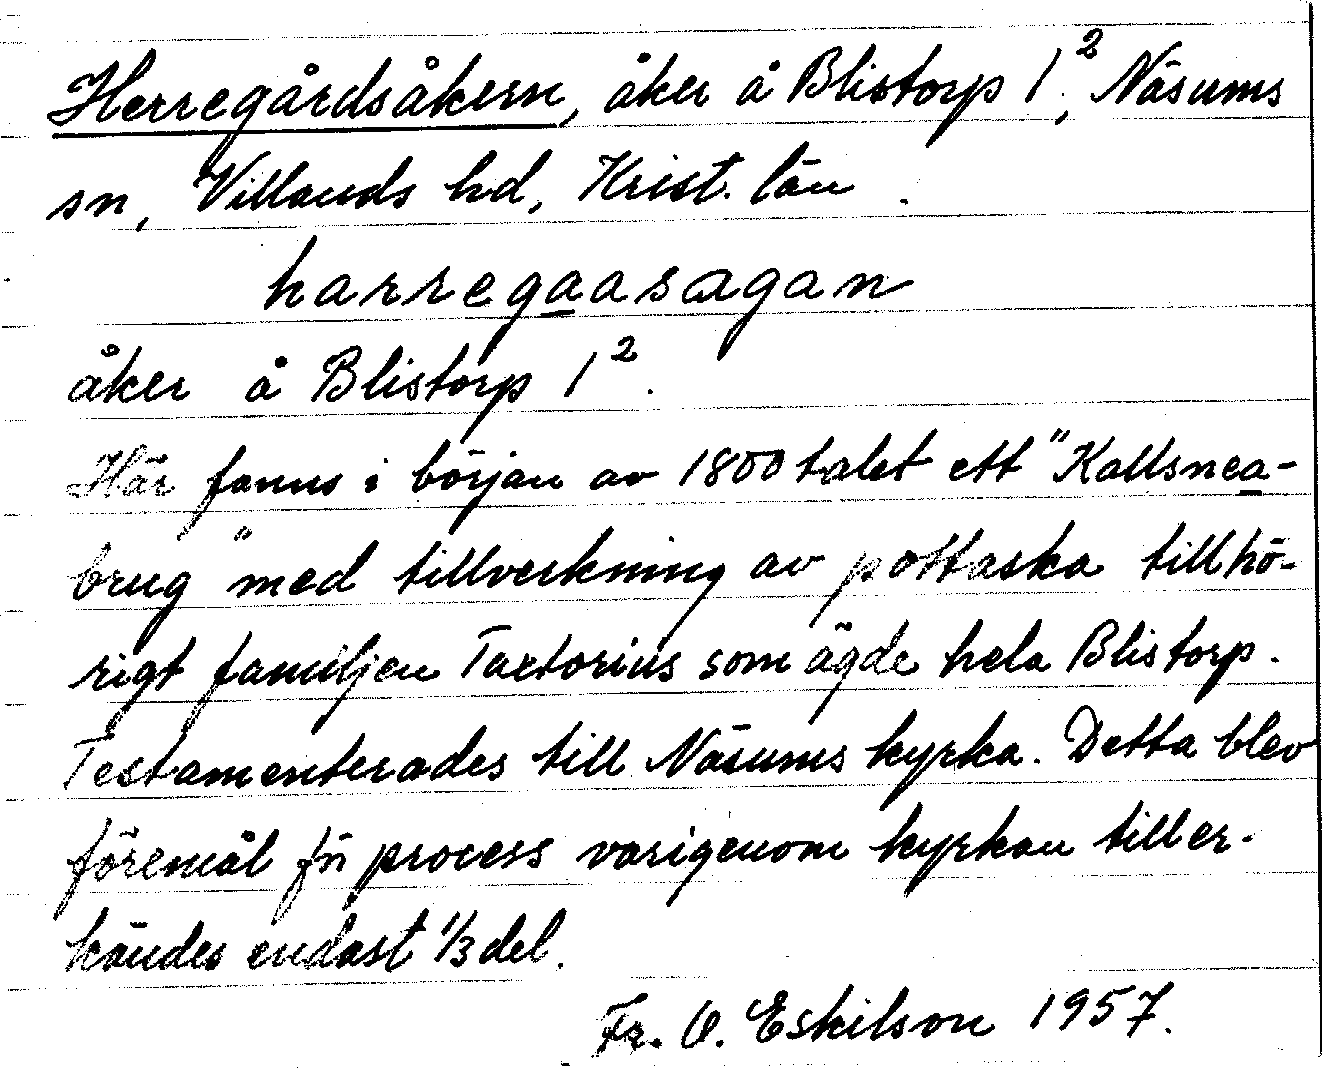 Herregårdsåkern, åker å Blistorp 1², Näsums
sn, Villands hd, Krist. län.
harregaasagan
åker å Blistorp 1².
Här fanns i början av 1800 talet ett "Kallsnea-
brug" med tillverkning av pottaska tillhö-
rigt familjen Taxtorius som ägde hela Blistorp.
Testamenterades till Näsums kyrka. Detta blev
föremål för process varigenom kyrkan tiller-
kändes endast 1/3 del.
Fr. O. Eskilson 1957.